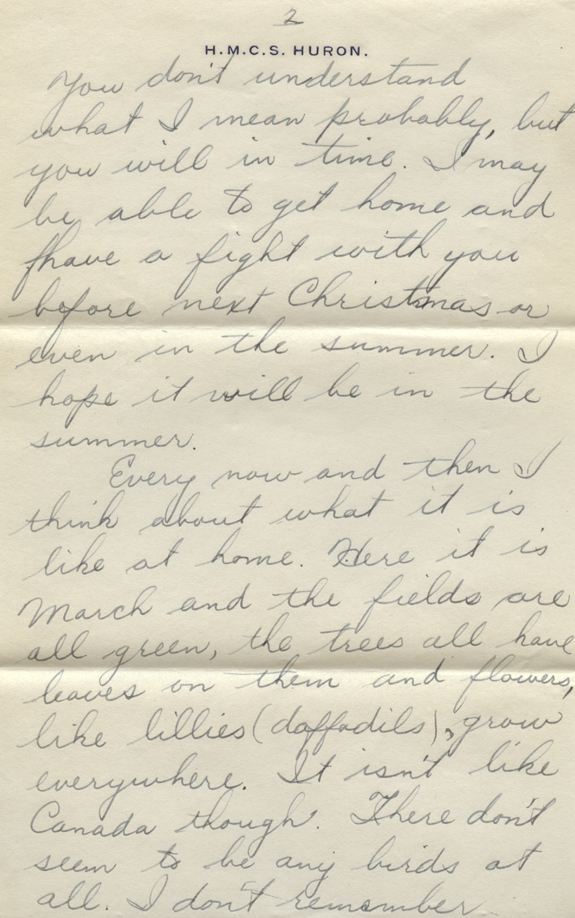 2
H.M.C.S. HURON.
You don't understand
what I mean probably, but
you will in time. I may
be able to get home and
have a fight with you
before next Christmas or
even in the summer. I
hope it will be in the
summer.
Every now and then I
think about what it is
like at home. Here it is
March and the fields are
all green, the trees all have
leaves on them and flowers,
like lillies (daffodils), grow
everywhere. It isn't like
Canada though. There don't
seem to be any birds at
all. I don't remember